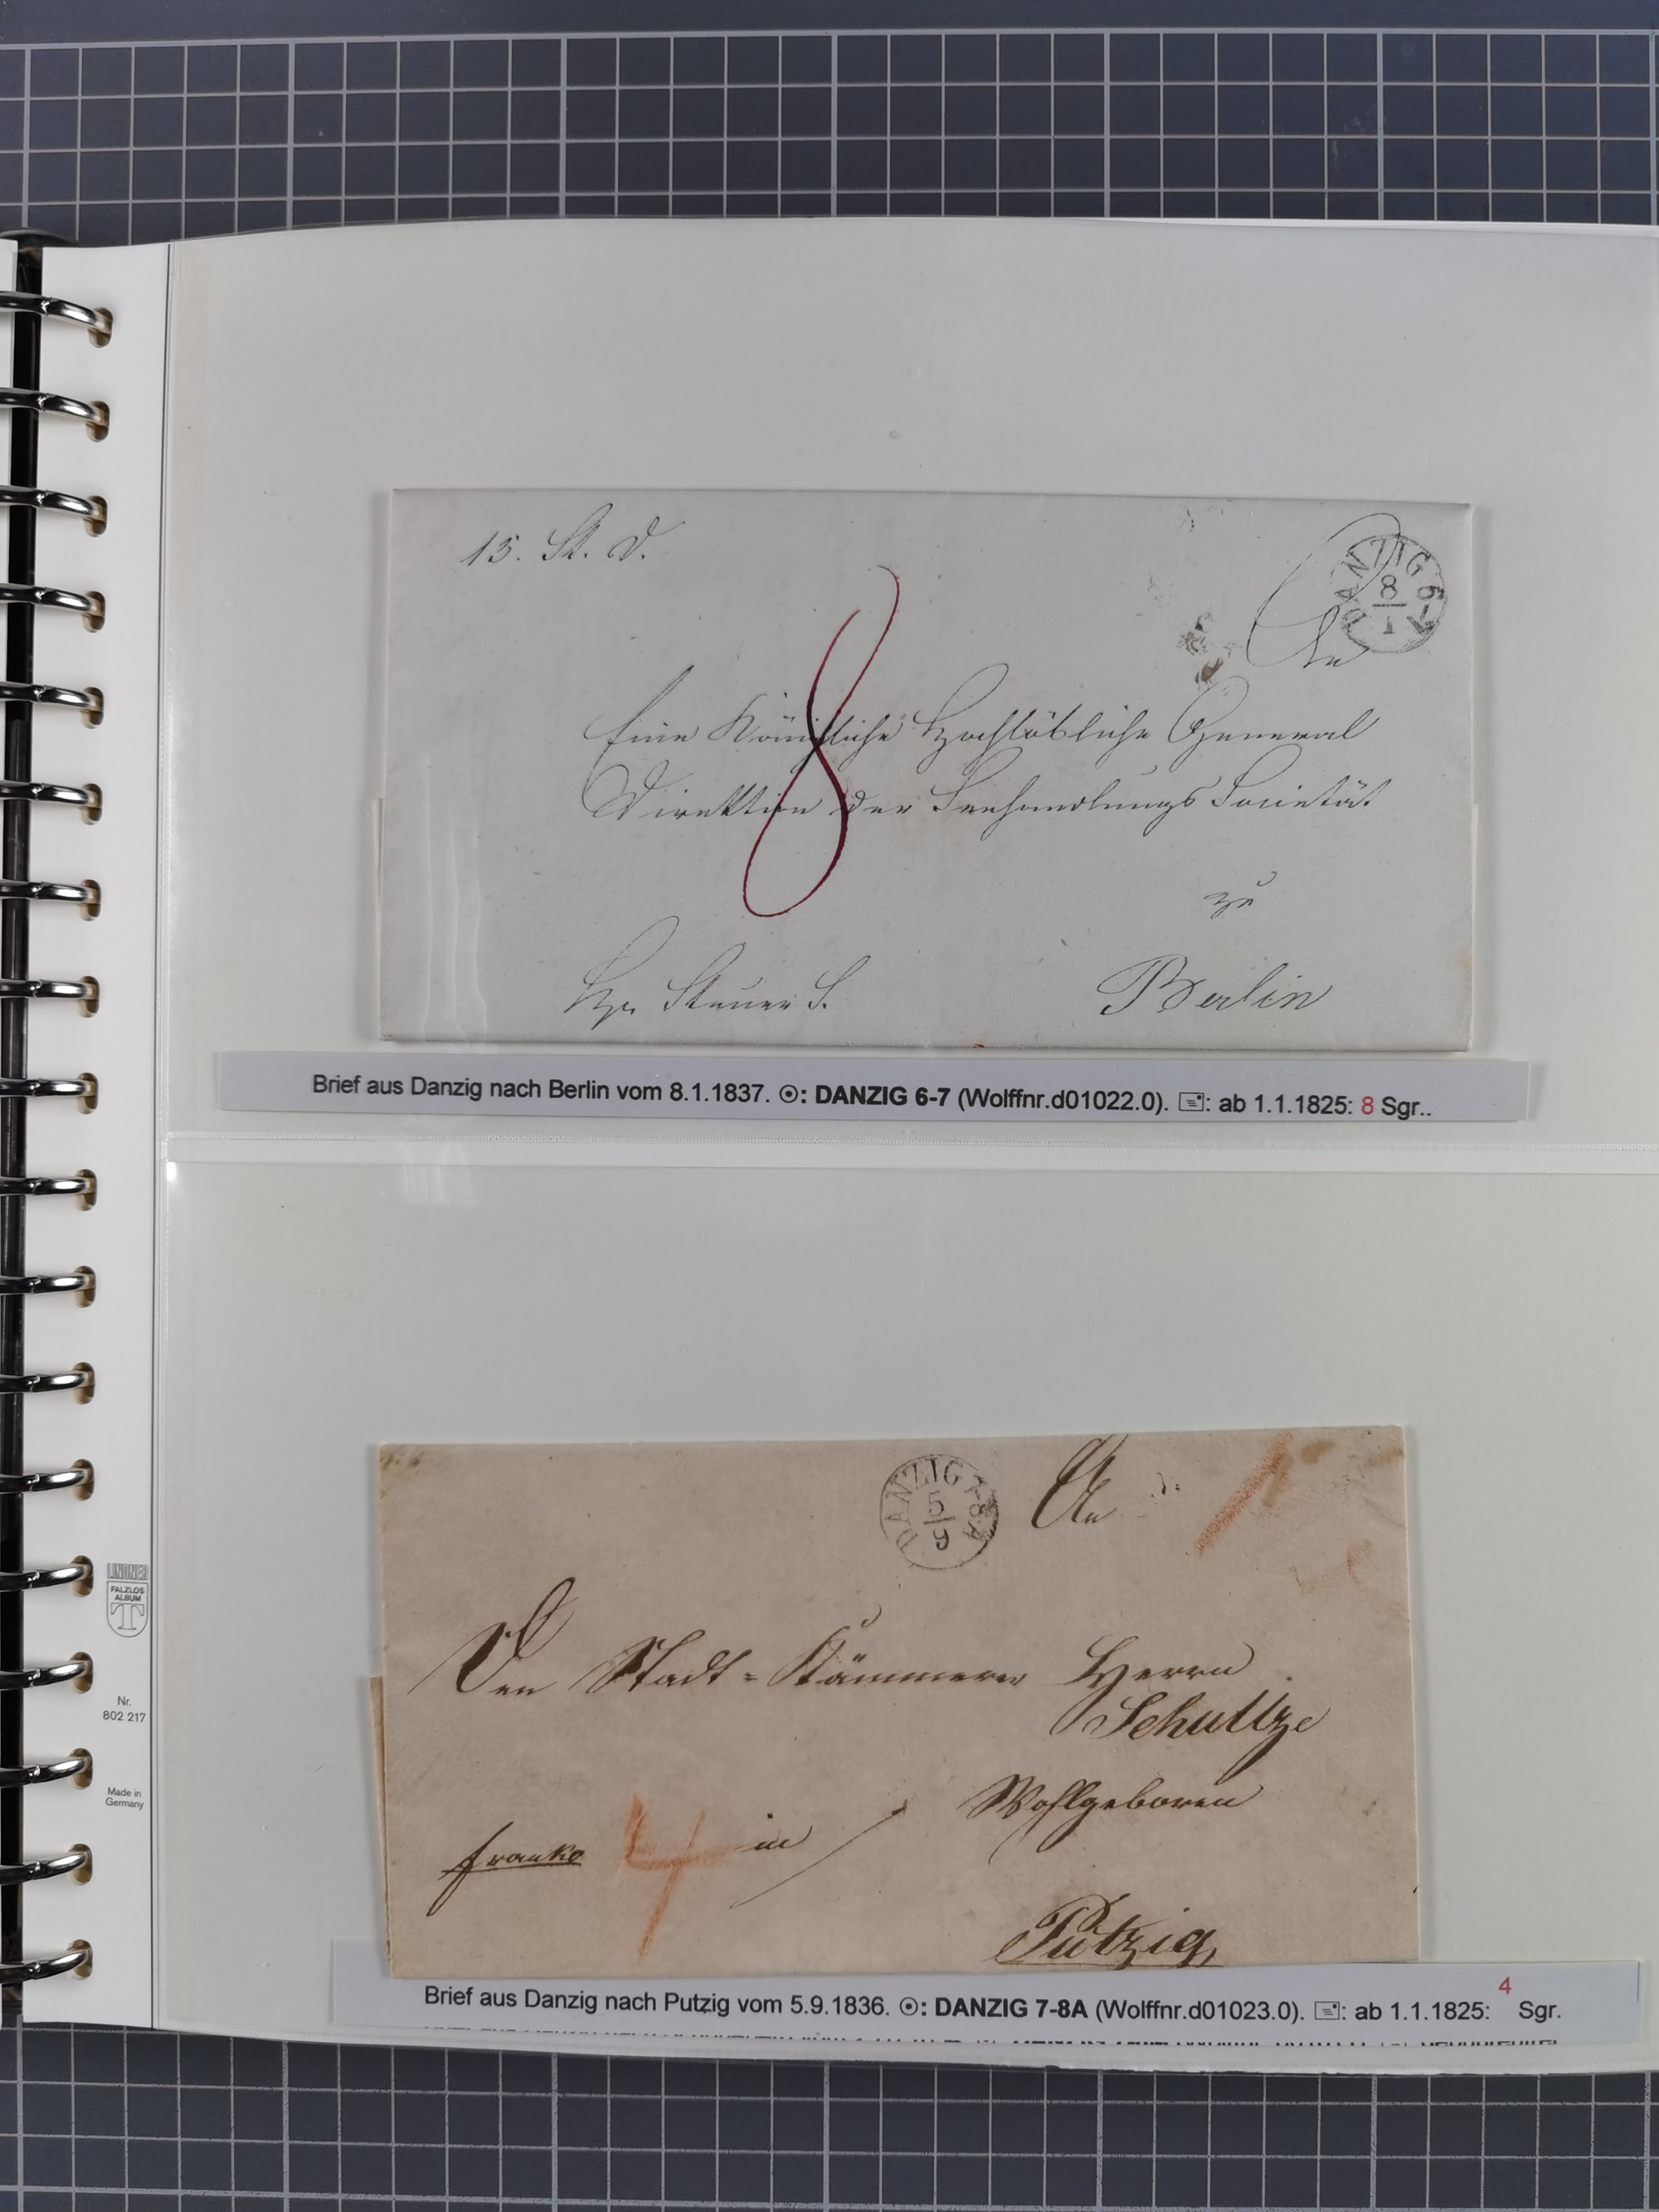 15. St. D.
DANZIG 6-7
8
1
An
Eine Königliche Hochlöbliche General
Direktion der Seehandlungs Societät
8
zu
Berlin
Brief aus Danzig nach Berlin vom 8.1.1837. ⦿: DANZIG 6-7 (Wolffnr.d01022.0). 🖃: ab 1.1.1825: 8 Sgr..
DANZIG 7-8A
5
9
An
Den Stadt=Kämmerer Herrn
Schultze
Wohlgeboren
franko 4 in
Putzig,
Brief aus Danzig nach Putzig vom 5.9.1836. ⦿: DANZIG 7-8A (Wolffnr.d01023.0). 🖃: ab 1.1.1825: 4 Sgr.
LINDNER
FALZLOS
ALBUM
T
Nr.
802 217
Made in
Germany